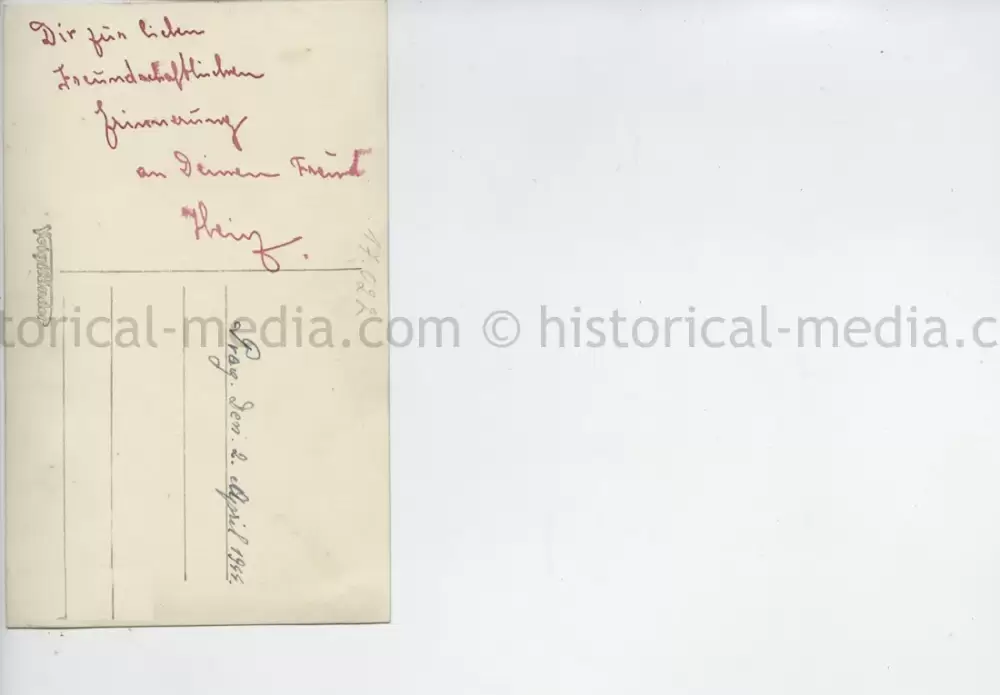 Dir zur lieben
Freundschaftlichen
Erinnerung
an Deinen Freund
Heinz.
17.622
Voigtländer
Prag. Den. 2. April 1944.
torical-media.com © historical-media.c